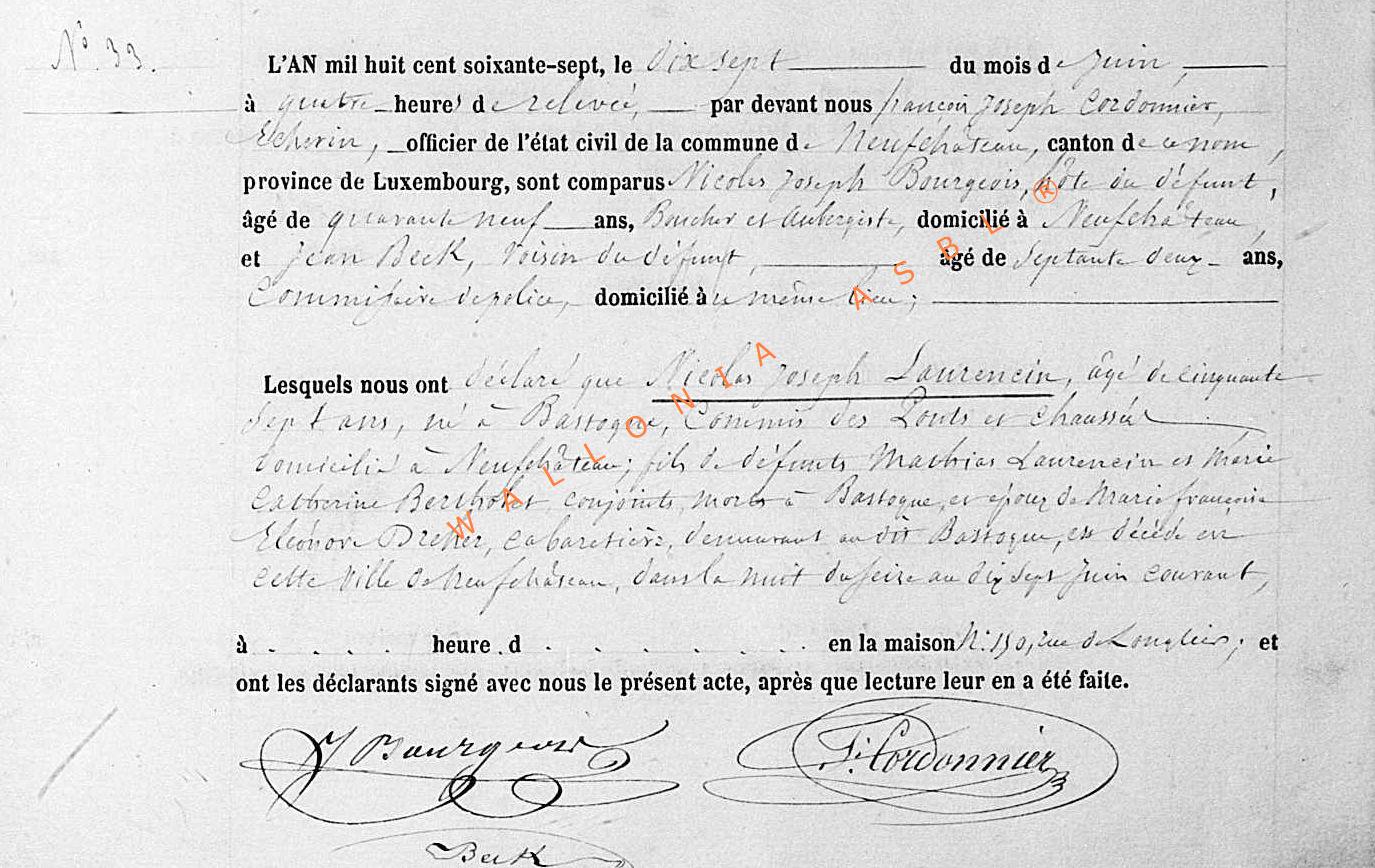 N° 33.
L'AN mil huit cent soixante-sept, le dix sept du mois de Juin,
à quatre heures de relevée, par devant nous françois Joseph Cordonnier,
Echevin, officier de l'état civil de la commune de Neufchâteau, canton de ce nom,
province de Luxembourg, sont comparus Nicolas Joseph Bourgeois, hôte du défunt,
âgé de quarante neuf ans, Boucher et Aubergiste, domicilié à Neufchâteau,
et Jean Beck, Voisin du défunt, âgé de Septante deux ans,
Commissaire de police, domicilié à ce même lieu;
Lesquels nous ont déclaré que Nicolas Joseph Laurencin, âgé de cinquante
sept ans, né à Bastogne, Commis des Ponts et chaussées
domicilié à Neufchâteau; fils de défunts Mathias Laurencin et Marie
Catherine Berthollet, conjoints, morts à Bastogne, et époux de Marie françoise
Eléonore Dreher, cabaretière, demeurant au dit Bastogne, est décédé en
cette Ville de Neufchâteau, dans la nuit du seize au dix sept Juin courant,
à . . . . heure . d . . . . . . . en la maison N° 150, rue de Longlier; et
ont les déclarants signé avec nous le présent acte, après que lecture leur en a été faite.
Bourgeois F. Cordonnier
Beck
WALLONIA ASBL ®